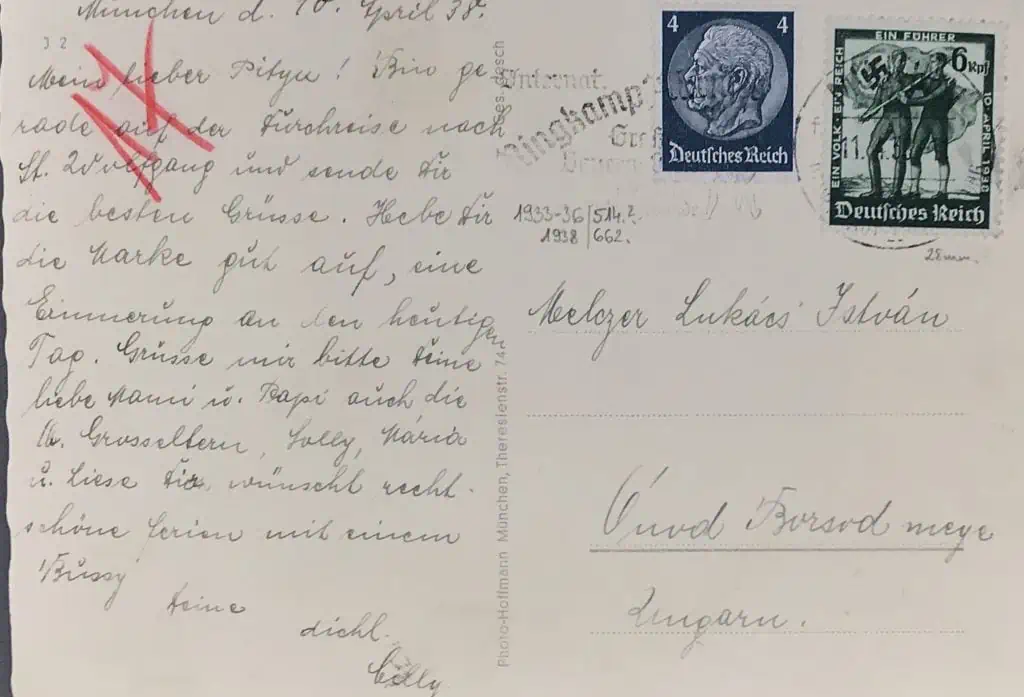 München d. 10. April 38.
32
Mein lieber Pityu! Bin ge
rade auf der Durchreise nach
St. Wolfgang und sende Dir
die besten Grüsse. Hebe Dir
die Marke gut auf, eine
Erinnerung an den heutigen
Tag. Grüsse mir bitte Deine
liebe Mami u. Papi auch die
Grosseltern, Lolly, Mária
u. Liese Dir wünscht recht
schöne Ferien mit einem
Bussy
Deine
dichl.
Cilly
ges. gesch
Photo-Hoffmann München, Theresienstr. 74
Internat.
Ringkampf
4 4
Deutsches Reich
EIN FÜHRER
EIN VOLK · EIN REICH
6 Rpf
10. APRIL 1938
Deutsches Reich
1933-36/514.?
1938/662.
28mm.
Melczer Lukács István
Ónod Borsod megye
Ungarn.